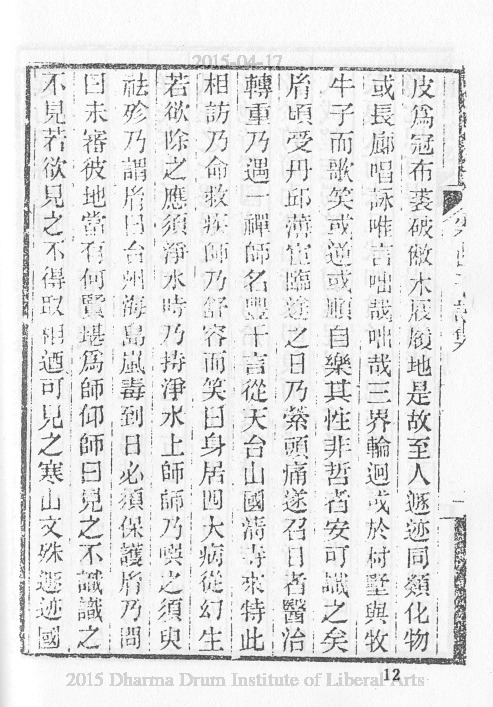 2015-04-17
皮爲冠布裘破敝木屐履地是故至人遯迹同類化物
或長廊唱詠唯言咄哉咄哉三界輪迴或於村墅與牧
牛子而歌笑或逆或順自樂其性非哲者安可識之矣
胤頃受丹邱薄宦臨途之日乃縈頭痛遂召日者醫治
轉重乃遇一禪師名豐干言從天台山國清寺來特此
相訪乃命救疾師乃舒容而笑曰身居四大病從幻生
若欲除之應須淨水時乃持淨水上師師乃噀之須臾
祛殄乃謂胤曰台州海島嵐毒到日必須保護胤乃問
曰未審彼地當有何賢堪爲師仰師曰見之不識識之
不見若欲見之不得取相迺可見之寒山文殊遯迹國
12
2015 Dharma Drum Institute of Liberal Arts